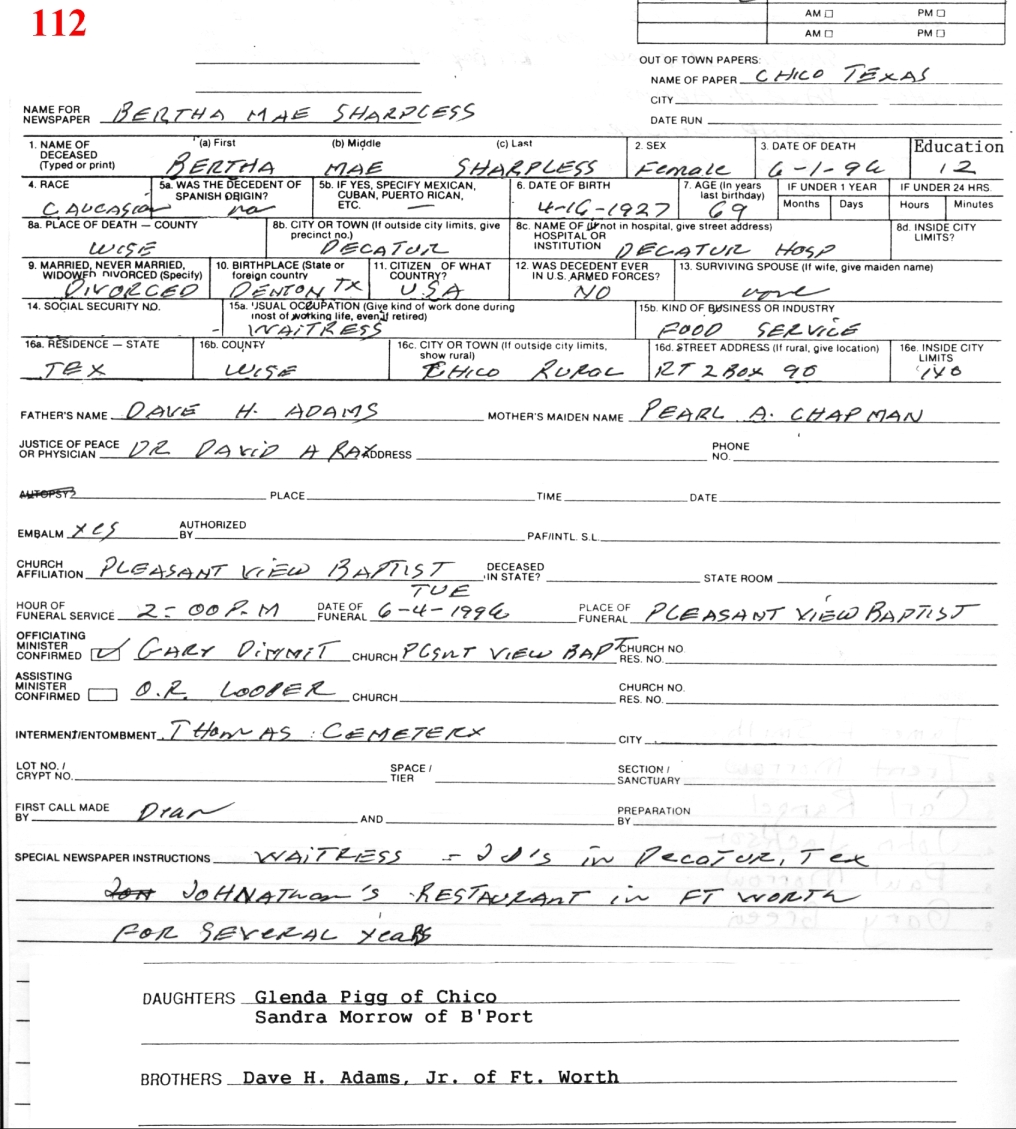 112
AM □ PM □
AM □ PM □
OUT OF TOWN PAPERS:
NAME OF PAPER CHICO TEXAS
CITY
NAME FOR NEWSPAPER BERTHA MAE SHARPLESS
DATE RUN
1. NAME OF DECEASED (Typed or print) (a) First (b) Middle (c) Last 2. SEX 3. DATE OF DEATH Education
BERTHA MAE SHARPLESS Female 6-1-96 12
4. RACE 5a. WAS THE DECEDENT OF SPANISH ORIGIN? 5b. IF YES, SPECIFY MEXICAN, CUBAN, PUERTO RICAN, ETC. 6. DATE OF BIRTH 7. AGE (In years last birthday) IF UNDER 1 YEAR IF UNDER 24 HRS.
Months Days Hours Minutes
CAUCASIAN no — 4-16-1927 69
8a. PLACE OF DEATH — COUNTY 8b. CITY OR TOWN (If outside city limits, give precinct no.) 8c. NAME OF (If not in hospital, give street address) HOSPITAL OR INSTITUTION 8d. INSIDE CITY LIMITS?
WISE DECATUR DECATUR HOSP
9. MARRIED, NEVER MARRIED, WIDOWED DIVORCED (Specify) 10. BIRTHPLACE (State or foreign country 11. CITIZEN OF WHAT COUNTRY? 12. WAS DECEDENT EVER IN U.S. ARMED FORCES? 13. SURVIVING SPOUSE (If wife, give maiden name)
DIVORCED DENTON TX USA NO none
14. SOCIAL SECURITY NO. 15a. USUAL OCCUPATION (Give kind of work done during most of working life, even if retired) 15b. KIND OF BUSINESS OR INDUSTRY
- WAITRESS FOOD SERVICE
16a. RESIDENCE — STATE 16b. COUNTY 16c. CITY OR TOWN (If outside city limits, show rural) 16d. STREET ADDRESS (If rural, give location) 16e. INSIDE CITY LIMITS
TEX WISE CHICO RURAL RT 2 BOX 90 NO
FATHER'S NAME DAVE H. ADAMS MOTHER'S MAIDEN NAME PEARL A. CHAPMAN
JUSTICE OF PEACE OR PHYSICIAN DR DAVID A RAY ADDRESS PHONE NO.
AUTOPSY? PLACE TIME DATE
EMBALM yes AUTHORIZED BY PAF/INTL. S.L.
CHURCH AFFILIATION PLEASANT VIEW BAPTIST DECEASED IN STATE? STATE ROOM
TUE
HOUR OF FUNERAL SERVICE 2:00 P.M DATE OF FUNERAL 6-4-1996 PLACE OF FUNERAL PLEASANT VIEW BAPTIST
OFFICIATING MINISTER CONFIRMED ☑ GARY DIMMIT CHURCH PLSNT VIEW BAPT CHURCH NO. RES. NO.
ASSISTING MINISTER CONFIRMED □ O.R. LOOPER CHURCH CHURCH NO. RES. NO.
INTERMENT/ENTOMBMENT THOMAS CEMETERY CITY
LOT NO. / CRYPT NO. SPACE / TIER SECTION / SANCTUARY
FIRST CALL MADE BY Dean AND PREPARATION BY
SPECIAL NEWSPAPER INSTRUCTIONS WAITRESS - JD'S in DECATUR, Tex
JOHNATHAN'S RESTAURANT in FT WORTH
FOR SEVERAL years
DAUGHTERS Glenda Pigg of Chico
Sandra Morrow of B'Port
BROTHERS Dave H. Adams, Jr. of Ft. Worth